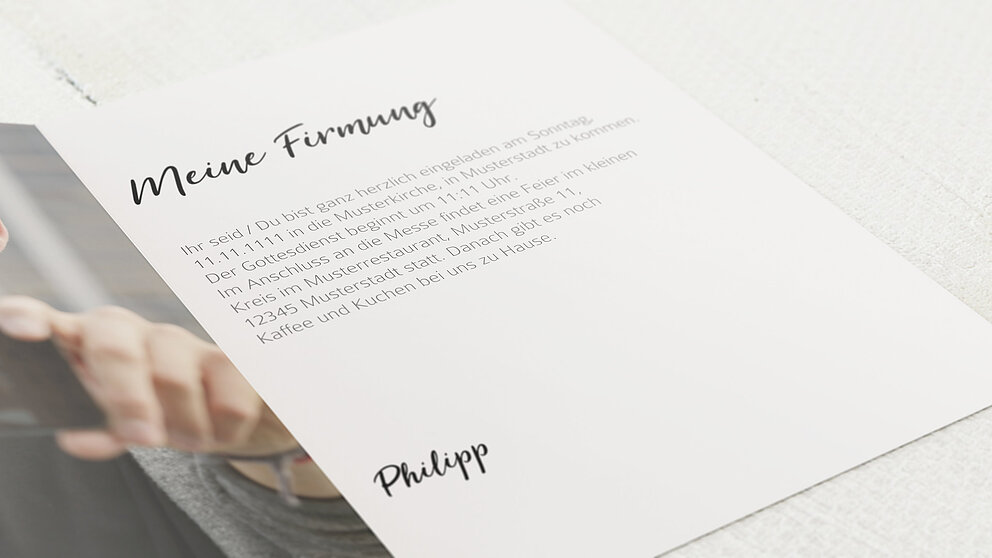 Meine Firmung
Ihr seid / Du bist ganz herzlich eingeladen am Sonntag,
11.11.1111 in die Musterkirche, in Musterstadt zu kommen.
Der Gottesdienst beginnt um 11:11 Uhr.
Im Anschluss an die Messe findet eine Feier im kleinen
Kreis im Musterrestaurant, Musterstraße 11,
12345 Musterstadt statt. Danach gibt es noch
Kaffee und Kuchen bei uns zu Hause.
Philipp